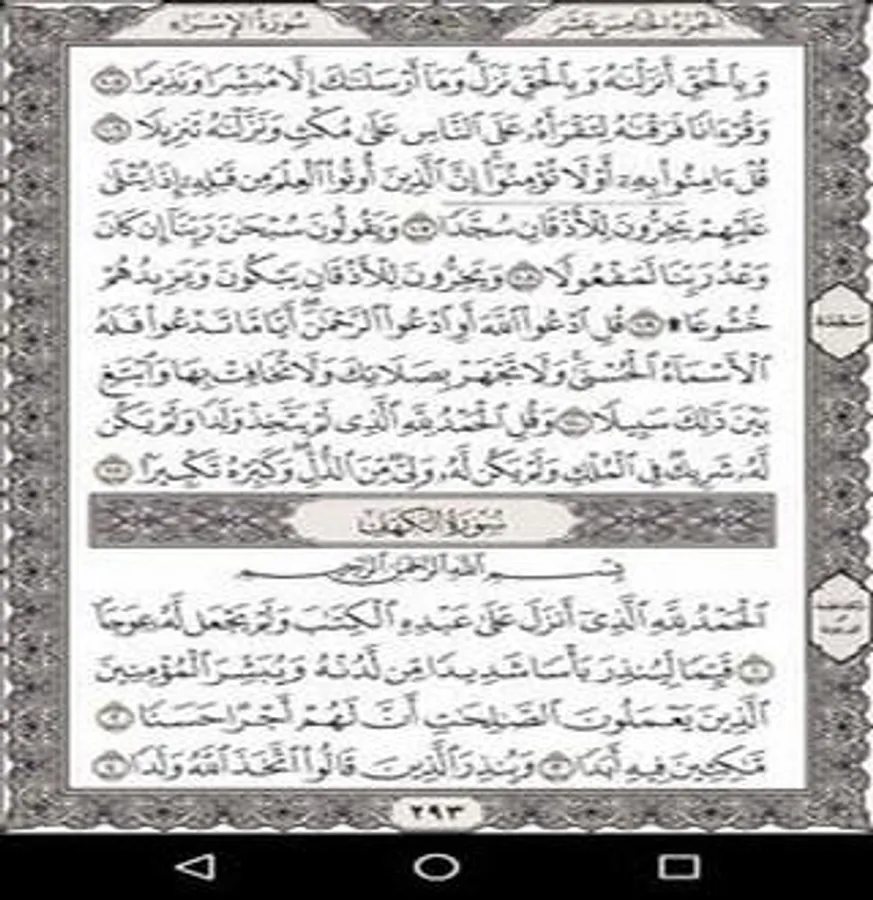 سُورَةُ الإِسْرَاءِ الجُزْءُ الخَامِسَ عَشَرَ
وَبِٱلْحَقِّ أَنزَلْنَٰهُ وَبِٱلْحَقِّ نَزَلَ ۗ وَمَآ أَرْسَلْنَٰكَ إِلَّا مُبَشِّرًا وَنَذِيرًا ١٠٥
وَقُرْءَانًا فَرَقْنَٰهُ لِتَقْرَأَهُۥ عَلَى ٱلنَّاسِ عَلَىٰ مُكْثٍ وَنَزَّلْنَٰهُ تَنزِيلًا ١٠٦
قُلْ ءَامِنُوا۟ بِهِۦٓ أَوْ لَا تُؤْمِنُوٓا۟ ۚ إِنَّ ٱلَّذِينَ أُوتُوا۟ ٱلْعِلْمَ مِن قَبْلِهِۦٓ إِذَا يُتْلَىٰ
عَلَيْهِمْ يَخِرُّونَ لِلْأَذْقَانِ سُجَّدًا ١٠٧ وَيَقُولُونَ سُبْحَٰنَ رَبِّنَآ إِن كَانَ
وَعْدُ رَبِّنَا لَمَفْعُولًا ١٠٨ وَيَخِرُّونَ لِلْأَذْقَانِ يَبْكُونَ وَيَزِيدُهُمْ
خُشُوعًا ۩ ١٠٩ قُلِ ٱدْعُوا۟ ٱللَّهَ أَوِ ٱدْعُوا۟ ٱلرَّحْمَٰنَ ۖ أَيًّا مَّا تَدْعُوا۟ فَلَهُ
ٱلْأَسْمَآءُ ٱلْحُسْنَىٰ ۚ وَلَا تَجْهَرْ بِصَلَاتِكَ وَلَا تُخَافِتْ بِهَا وَٱبْتَغِ
بَيْنَ ذَٰلِكَ سَبِيلًا ١١٠ وَقُلِ ٱلْحَمْدُ لِلَّهِ ٱلَّذِى لَمْ يَتَّخِذْ وَلَدًا وَلَمْ يَكُن
لَّهُۥ شَرِيكٌ فِى ٱلْمُلْكِ وَلَمْ يَكُن لَّهُۥ وَلِىٌّ مِّنَ ٱلذُّلِّ ۖ وَكَبِّرْهُ تَكْبِيرًۢا ١١١
سُورَةُ الكَهْفِ
بِسْمِ ٱللَّهِ ٱلرَّحْمَٰنِ ٱلرَّحِيمِ
ٱلْحَمْدُ لِلَّهِ ٱلَّذِىٓ أَنزَلَ عَلَىٰ عَبْدِهِ ٱلْكِتَٰبَ وَلَمْ يَجْعَل لَّهُۥ عِوَجَا ۜ
١ قَيِّمًا لِّيُنذِرَ بَأْسًا شَدِيدًا مِّن لَّدُنْهُ وَيُبَشِّرَ ٱلْمُؤْمِنِينَ
ٱلَّذِينَ يَعْمَلُونَ ٱلصَّٰلِحَٰتِ أَنَّ لَهُمْ أَجْرًا حَسَنًا ٢
مَّٰكِثِينَ فِيهِ أَبَدًا ٣ وَيُنذِرَ ٱلَّذِينَ قَالُوا۟ ٱتَّخَذَ ٱللَّهُ وَلَدًا ٤
سَجْدَة
٢٩٣